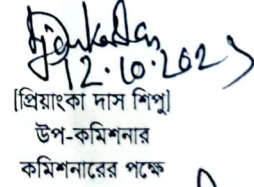 12.10.2023
[প্রিয়াংকা দাস শিপু]
উপ-কমিশনার
কমিশনারের পক্ষে